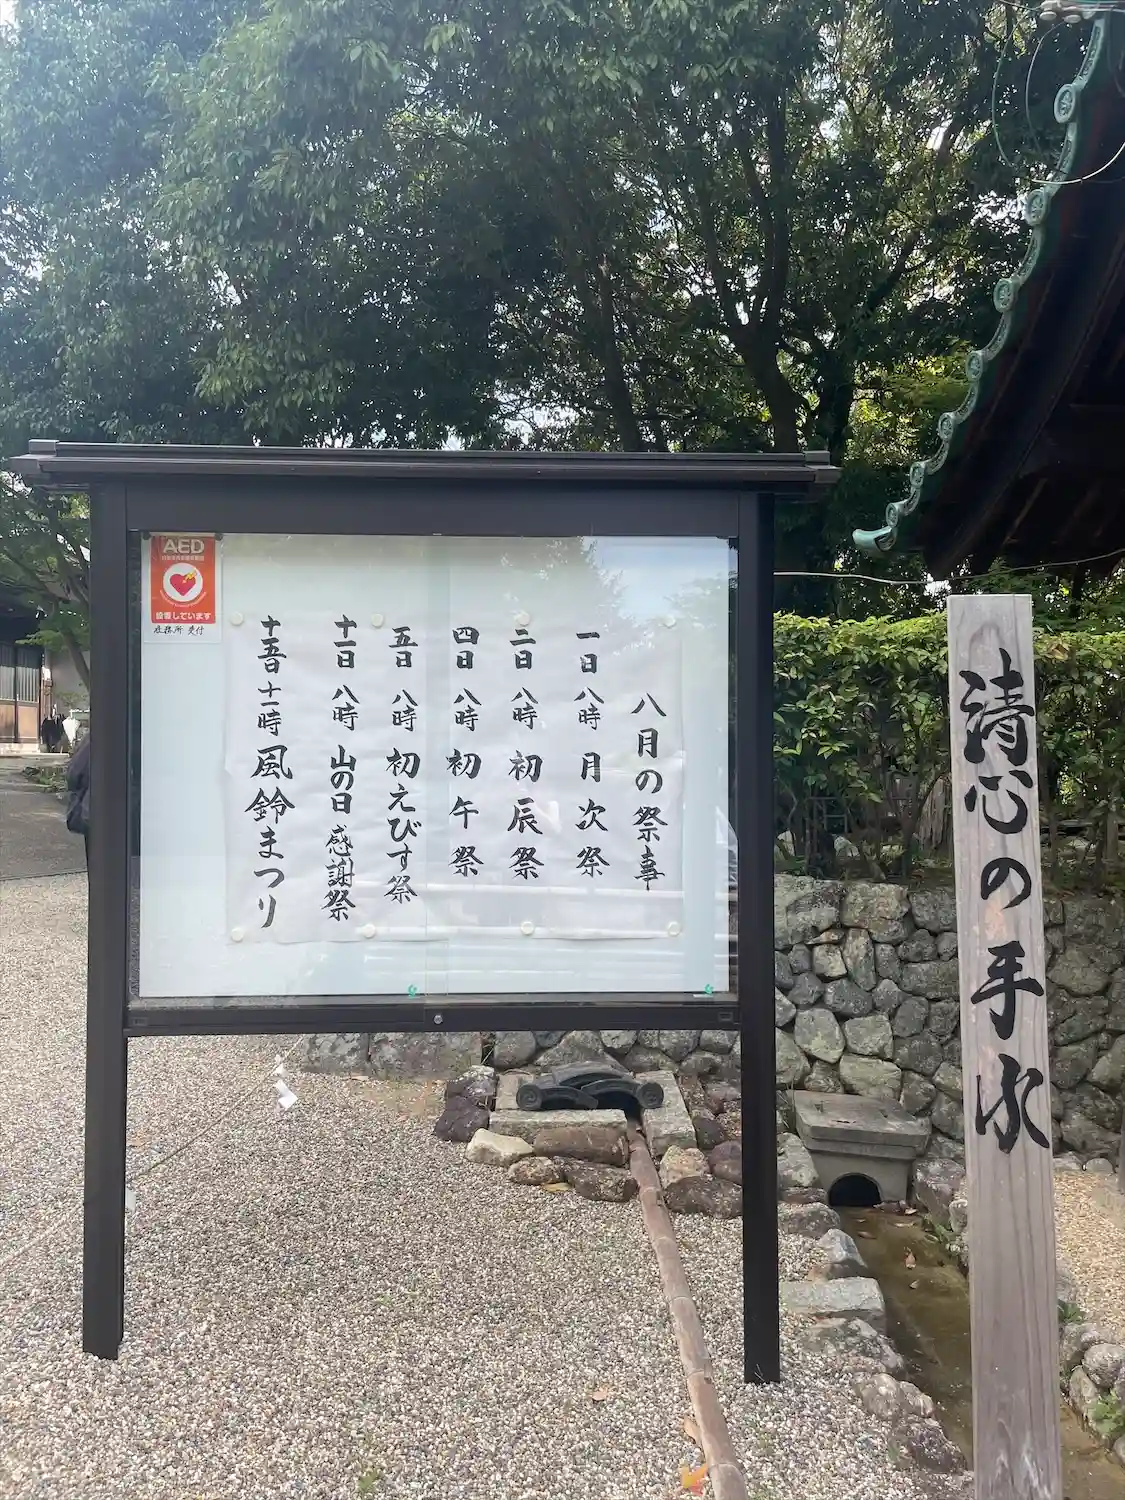 八月の祭事
一日 八時 月次祭
二日 八時 初辰祭
四日 八時 初午祭
五日 八時 初えびす祭
十一日 八時 山の日 感謝祭
十五日 十一時 風鈴まつり
AED
設置しています
社務所 受付
清心の手水